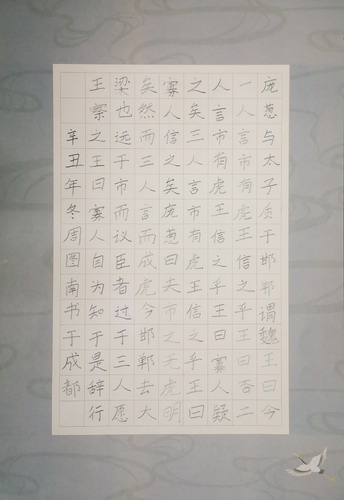 庞葱与太子质于邯郸谓魏王曰今
一人言市有虎王信之乎王曰否二
人言市有虎王信之乎王曰寡人疑
之矣三人言市有虎王信之乎王曰
寡人信之矣庞葱曰夫市之无虎明
矣然而三人言而成虎今邯郸去大
梁也远于市而议臣者过于三人愿
王察之王曰寡人自为知于是辞行
辛丑年冬周图南书于成都